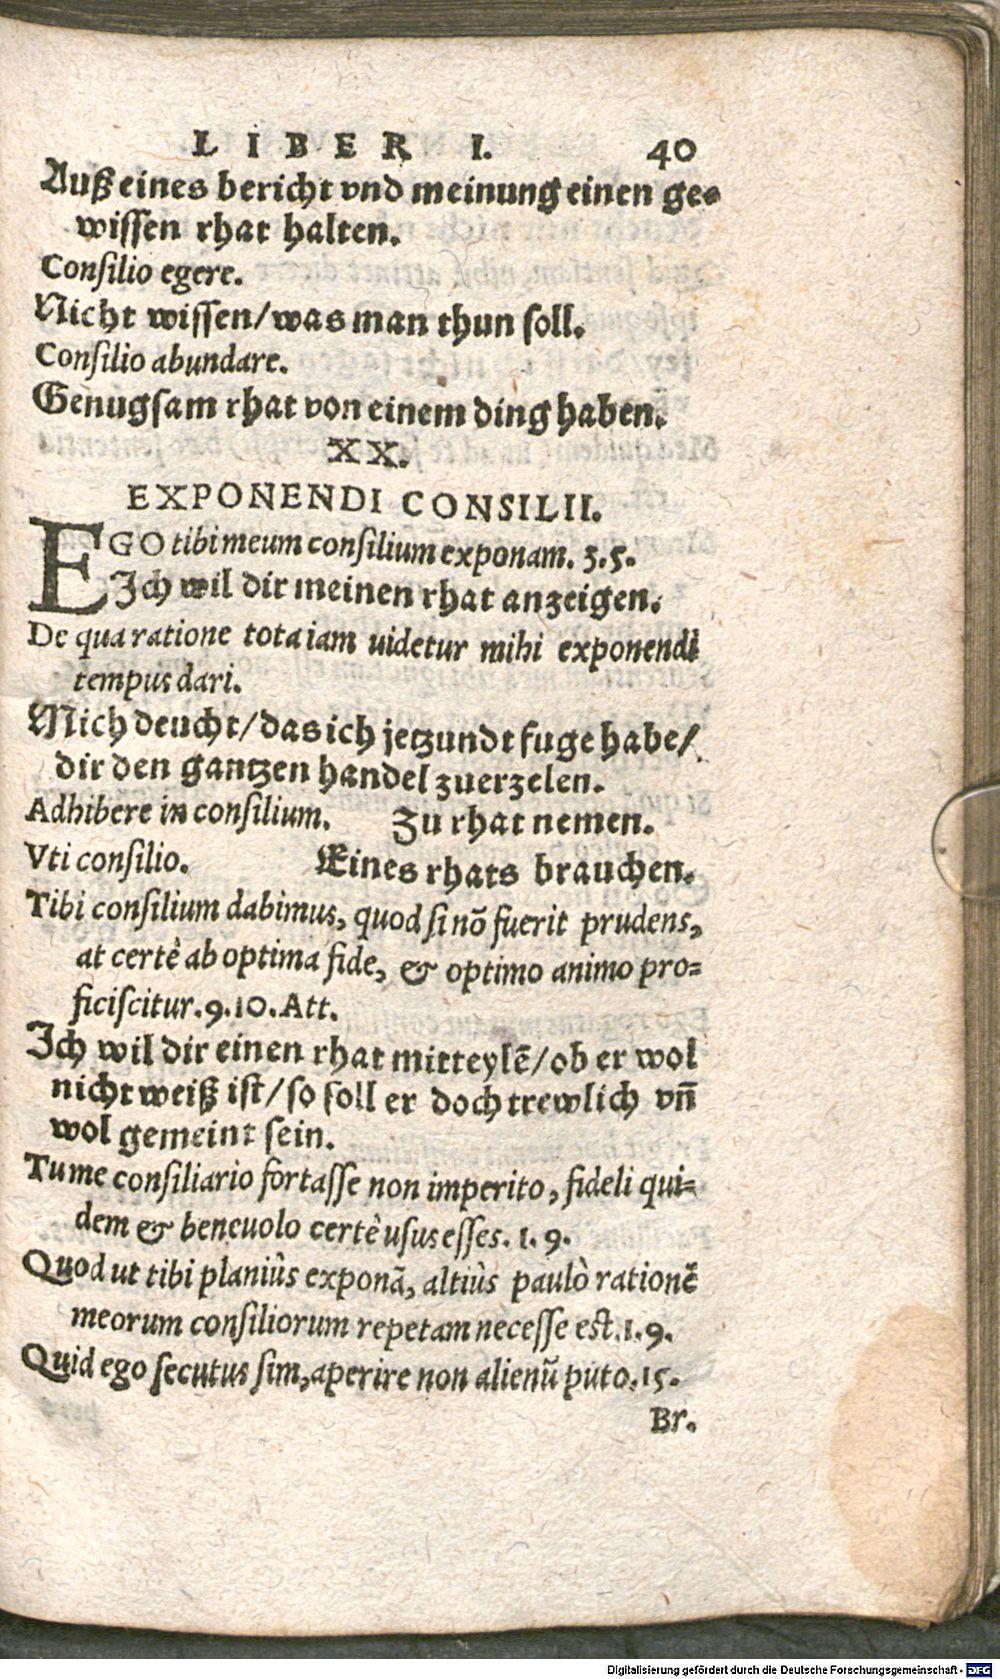 LIBER I. 40
Auß eines bericht vnd meinung einen ge-
wissen rhat halten.
Consilio egere.
Nicht wissen/was man thun soll.
Consilio abundare.
Genugsam rhat von einem ding haben.
XX.
EXPONENDI CONSILII.
EGO tibi meum consilium exponam. 3.5.
Ich wil dir meinen rhat anzeigen.
De qua ratione tota iam uidetur mihi exponendi
tempus dari.
Mich deucht/das ich jetzundt fuge habe/
dir den gantzen handel zuerzelen.
Adhibere in consilium. Zu rhat nemen.
Vti consilio. Eines rhats brauchen.
Tibi consilium dabimus, quod si nõ fuerit prudens,
at certè ab optima fide, & optimo animo pro-
ficiscitur.9.10.Att.
Ich wil dir einen rhat mitteylẽ/ob er wol
nicht weiß ist/so soll er doch trewlich vñ
wol gemeint sein.
Tu me consiliario fortasse non imperito, fideli qui-
dem & beneuolo certè usus esses.1.9.
Quod ut tibi planiûs exponã, altiûs paulò rationẽ
meorum consiliorum repetam necesse est.1.9.
Quid ego secutus sim,aperire non alienũ puto.15.
Br.
Digitalisierung gefördert durch die Deutsche Forschungsgemeinschaft - DFG